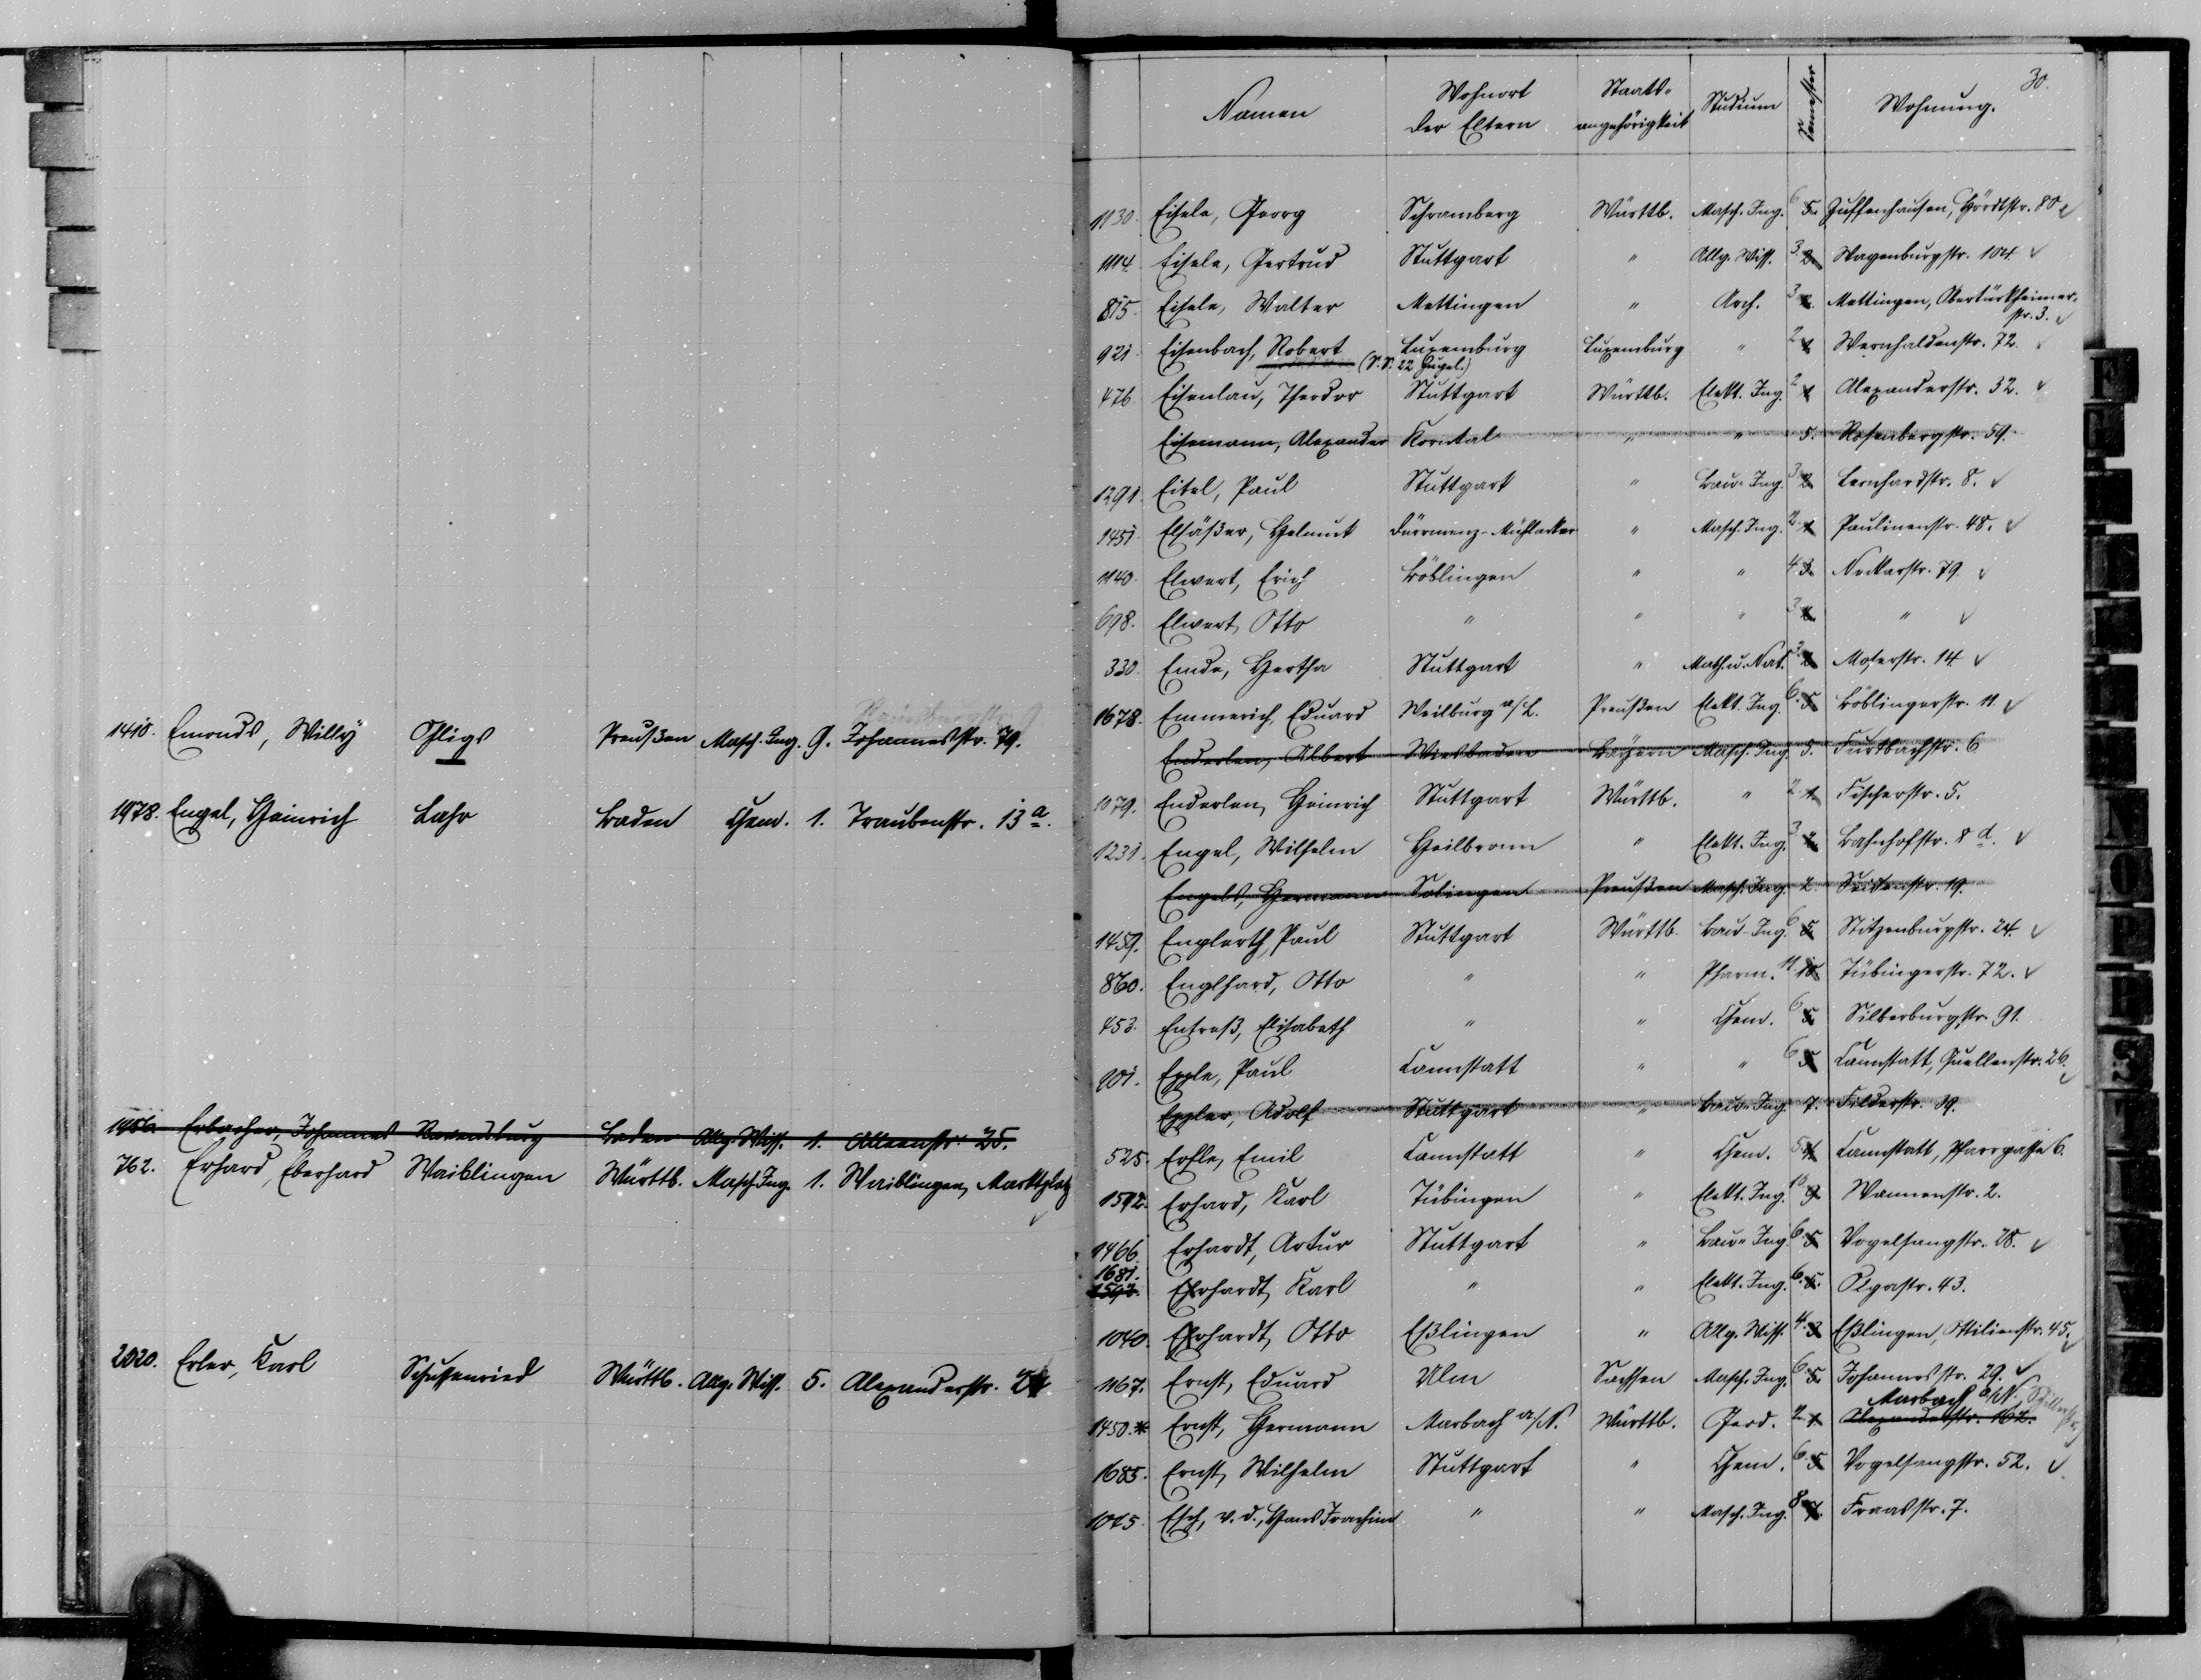 1410. Emonds, Willy Ohligs Preußen Masch. Ing. 9. Johannesstr. 79.
1978. Engel, Heinrich Lahr Baden Chem. 1. Traubenstr. 13 a.
Erbacher, Johannes Ravensburg Baden Allg. Wiss. 1. Alleenstr. 25.
762. Erhard, Eberhard Waiblingen Württb. Masch. Ing. 1. Waiblingen, Marktplatz
2020. Erler, Karl Schussenried Württb. Allg. Wiss. 5. Alexanderstr.
30.
Namen Wohnort der Eltern Staats- angehörigkeit Studium Semester Wohnung.
1130. Eisele, Georg Schramberg Württb. Masch. Ing. 6 5. Zuffenhausen, Hördtstr. 80
1114. Eisele, Gertrud Stuttgart " Allg. Wiss. 3. 2. Wagenburgstr. 104.
815. Eisele, Walter Mettingen " Arch. 3 Mettingen, Obertürkheimer-
str. 3.
921. Eisenbach, Robert Luxemburg Luxemburg " 2 1. Wernhaldenstr. 72.
476. Eisenlau, Theodor Stuttgart Württb. Elekt. Ing. 2 1 Alexanderstr. 32.
Eisemann, Alexander Korntal " " 5. Rosenbergstr. 59.
1291. Eitel, Paul Stuttgart " Bau-Ing. 3 2. Lenhardstr. 8.
1451. Elsäßer, Helmut Dürrmenz-Mühlacker " Masch. Ing. 2. 1. Paulinenstr. 48.
1140. Elwert, Erich Böblingen " " 4 3. Neckarstr. 79.
698. Elwert, Otto " " " 3 "
330. Emde, Hertha Stuttgart " Math. u. Nat. 3. Moserstr. 14
1678. Emmerich, Eduard Weilburg a/L. Preußen Elekt. Ing. 6. 5 Böblingerstr. 11.
Enderlen, Albert Wiesbaden Bayern Masch. Ing. 5. Furtbachstr. 6
1079. Enderlen, Heinrich Stuttgart Württb. " 2. 1. Fischerstr. 5.
1231. Engel, Wilhelm Heilbronn " Elekt. Ing. 3 Bahnhofstr. 8 d.
Engels, Hermann Solingen Preußen Masch. Ing. 2 Seidenstr. 19.
1459. Englerth, Paul Stuttgart Württb. Bau-Ing. 6. 5 Stitzenburgstr. 24.
860. Englhard, Otto " " Pharm. 11. 10 Tübingerstr. 72.
453. Entreß, Elisabeth " " Chem. 6 5 Silberburgstr. 91.
901. Epple, Paul Cannstatt " " 6 5 Cannstatt, Quellenstr. 26.
Eppler, Adolf Stuttgart " Bau-Ing. 7. Filderstr. 19.
525. Erhle, Emil Cannstatt " Chem. 5 4. Cannstatt, Pfarrgasse 6.
1592. Erhard, Karl Tübingen " Elekt. Ing. 10 9. Wannenstr. 2.
1466. Erhardt, Artur Stuttgart " Bau-Ing. 6. 5. Vogelsangstr. 28.
1681.
1592. Ehrhardt, Karl " " Elekt. Ing. 6. 5. Olgastr. 43.
1040. Ehrhardt, Otto Eßlingen " Allg. Wiss. 4. 3 Eßlingen, Ottilienstr. 45.
1167. Ernst, Eduard Ulm Sachsen Masch. Ing. 6 5. Johannesstr. 29.
Marbach a/N., Schillerstr.
1450.* Ernst, Hermann Marbach a/N. Württb. Geod. 2. 1. Alexanderstr. 162.
1685. Ernst, Wilhelm Stuttgart " Chem. 6. 5 Vogelsangstr. 52.
1075. Esch, v. d., Hans Joachim " " Masch. Ing. 8 7. Fraasstr. 7.